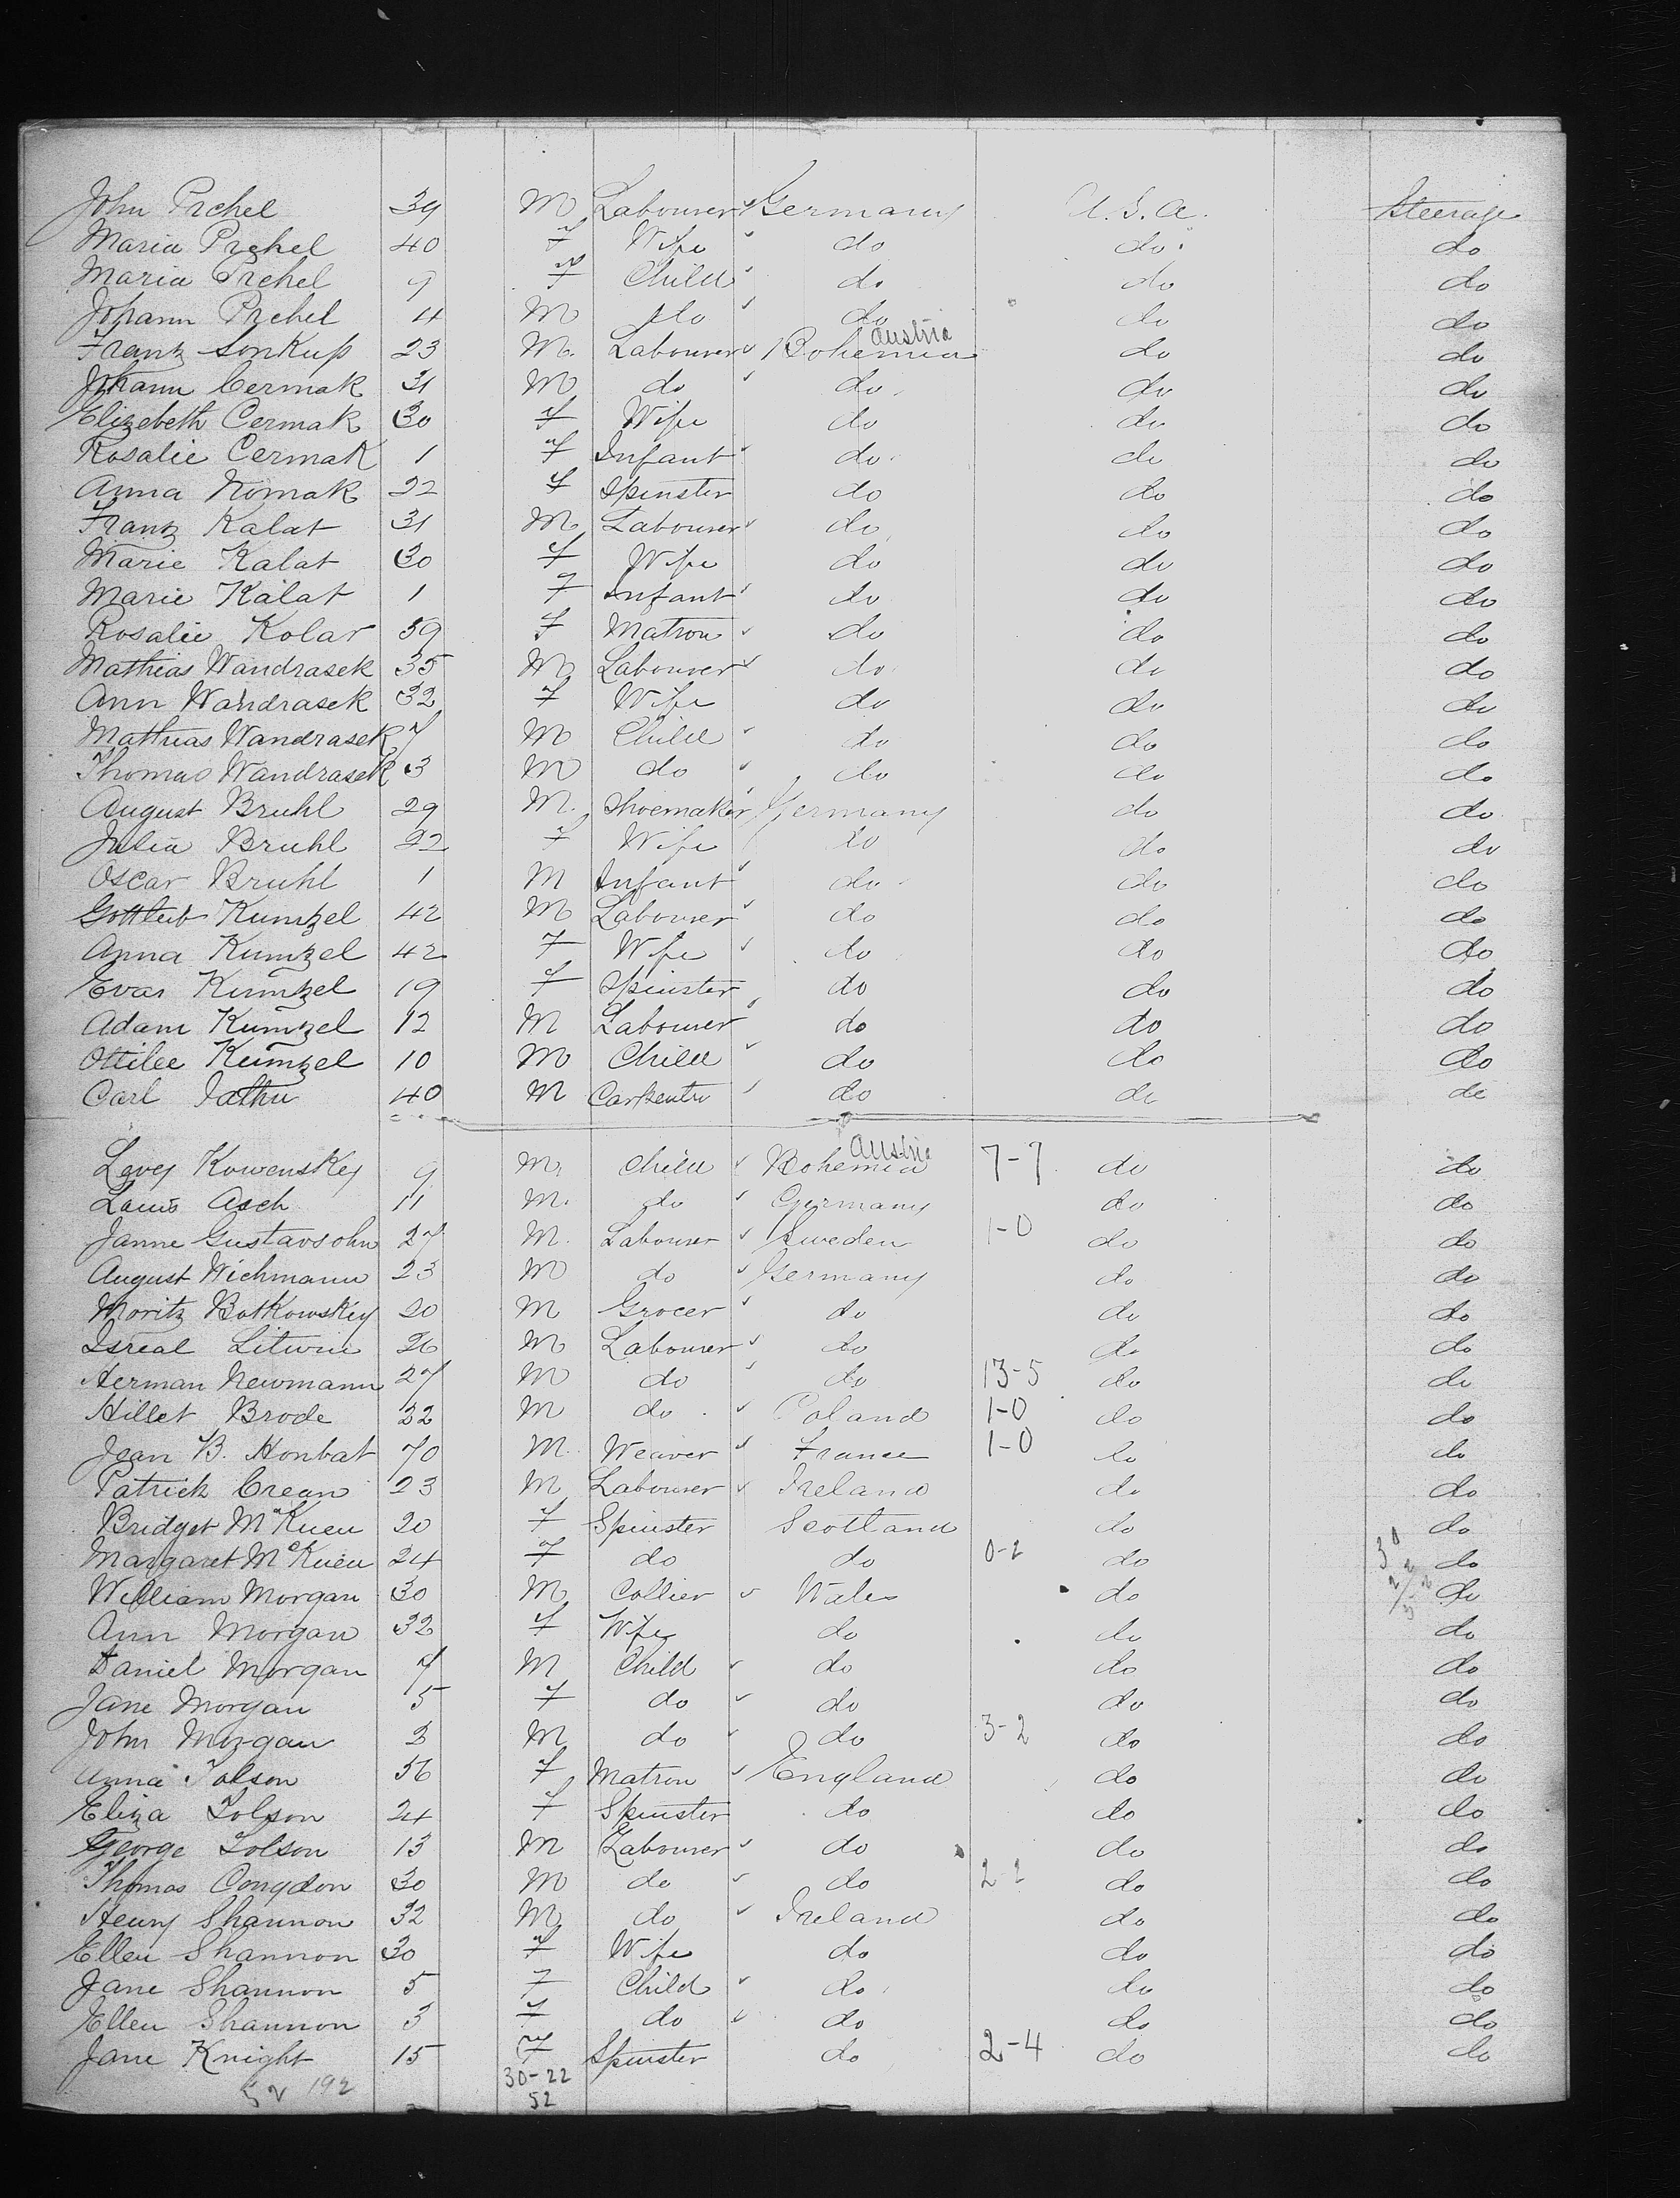 John Prchel 39 M Labourer Germany U.S.A. Steerage
Maria Prchel 40 F Wife do do do
Maria Prchel 9 F Child do do do
Johann Prchel 4 M do do do do
Franz Sonkup 23 M. Labourer Bohemia Austria do do
Johann Cermak 31 M do do do do
Elizebeth Cermak 30 F Wife do do do
Rosalie Cermak 1 F Infant do do do
Anna Nomak 22 F Spinster do do do
Franz Kalat 31 M Labourer do do do
Marie Kalat 30 F Wife do do do
Marie Kalat 1 F Infant do do do
Rosalie Kolar 39 F Matron do do do
Mathias Wandrasek 35 M Labourer do do do
Ann Wandrasek 32 F Wife do do do
Mathias Wandrasek 7 M Child do do do
Thomas Wandrasek 3 M do do do do
August Bruhl 29 M. Shoemaker Germany do do
Julia Bruhl 22 F Wife do do do
Oscar Bruhl 1 M Infant do do do
Gottleib Kumzel 42 M Labourer do do do
Anna Kumzel 42 F Wife do do do
Evar Kumzel 19 F Spinster do do do
Adam Kumzel 12 M Labourer do do do
Ottilee Kumzel 10 M Child do do do
Carl 40 M Carpenter do do do
Levey Kowenskey 9 M. Child Bohemia Austria 7-7 do do
Louis Asch 11 M. do Germany do do
Janne Gustavsohn 27 M. Labourer Sweden 1-0 do do
August Wichmann 23 M do Germany do do
Moritz Botkowskey 20 M Grocer do do do
Isreal Litwin 26 M Labourer do do do
Herman Newmann 27 M do do 13-5 do do
Hillet Brode 22 M do Poland 1-0 do do
Jean B. Honbat 70 M. Weaver France 1-0 do do
Patrick Crean 23 M Labourer Ireland do do
Bridget McKuen 20 F Spinster Scotland do do
Margaret McKuen 24 F do do 0-2 do 30 do
William Morgan 30 M Collier Wales do do
Ann Morgan 32 F Wife do do do
Daniel Morgan 7 M Child do do do
Jane Morgan 5 F do do do do
John Morgan 3 M do do 3-2 do do
Anna Tolson 56 F Matron England do do
Eliza Tolson 24 F Spinster do do do
George Tolson 13 M Labourer do do do
Thomas Congdon 30 M do do 2-2 do do
Henry Shannon 32 M do Ireland do do
Ellen Shannon 30 F Wife do do do
Jane Shannon 5 F Child do do do
Ellen Shannon 3 F do do do do
Jane Knight 15 F Spinster do 2-4 do do
192 30-22
52